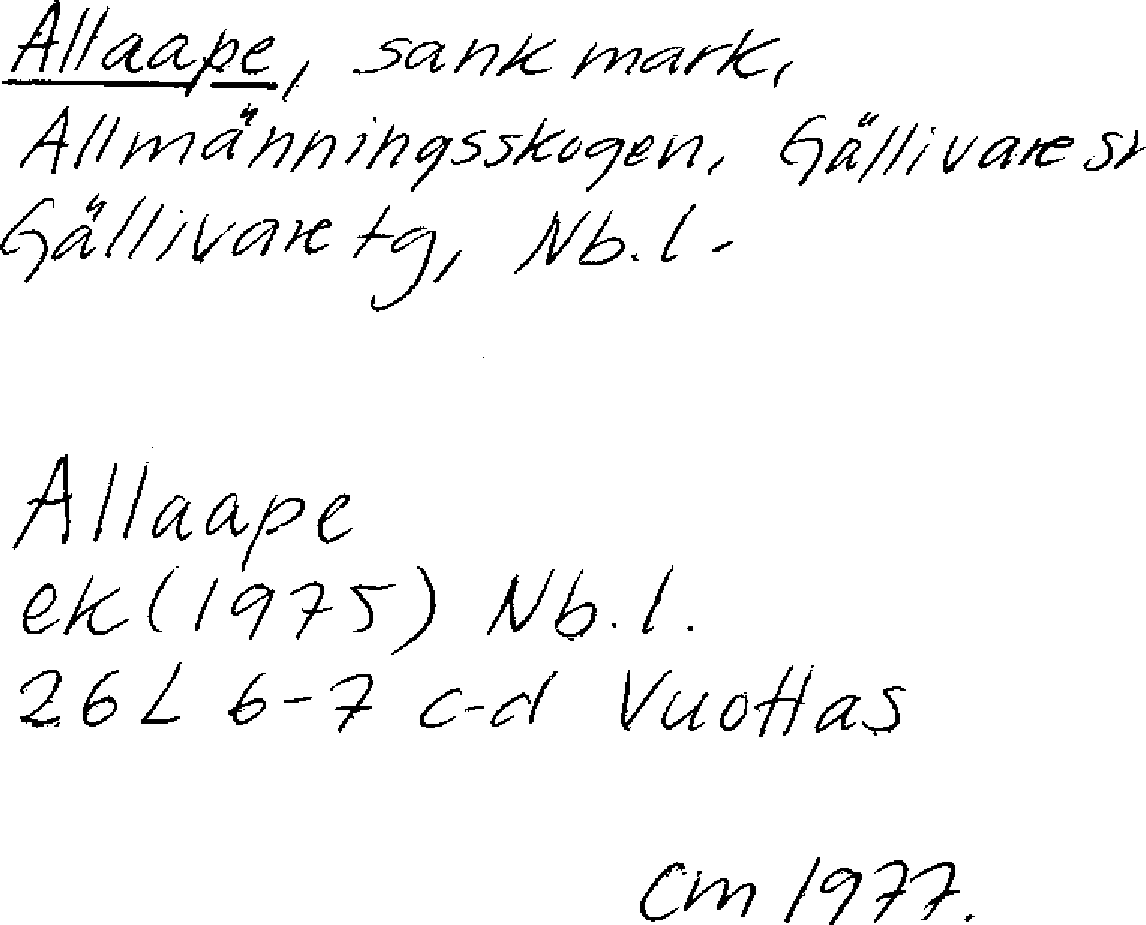 Allaape, sank mark,
Allmänningsskogen, Gällivare sn
Gällivare tg, Nb. l -
Allaape
ek (1975) Nb. l.
26 L 6-7 c-d Vuottas
Cm 1977.